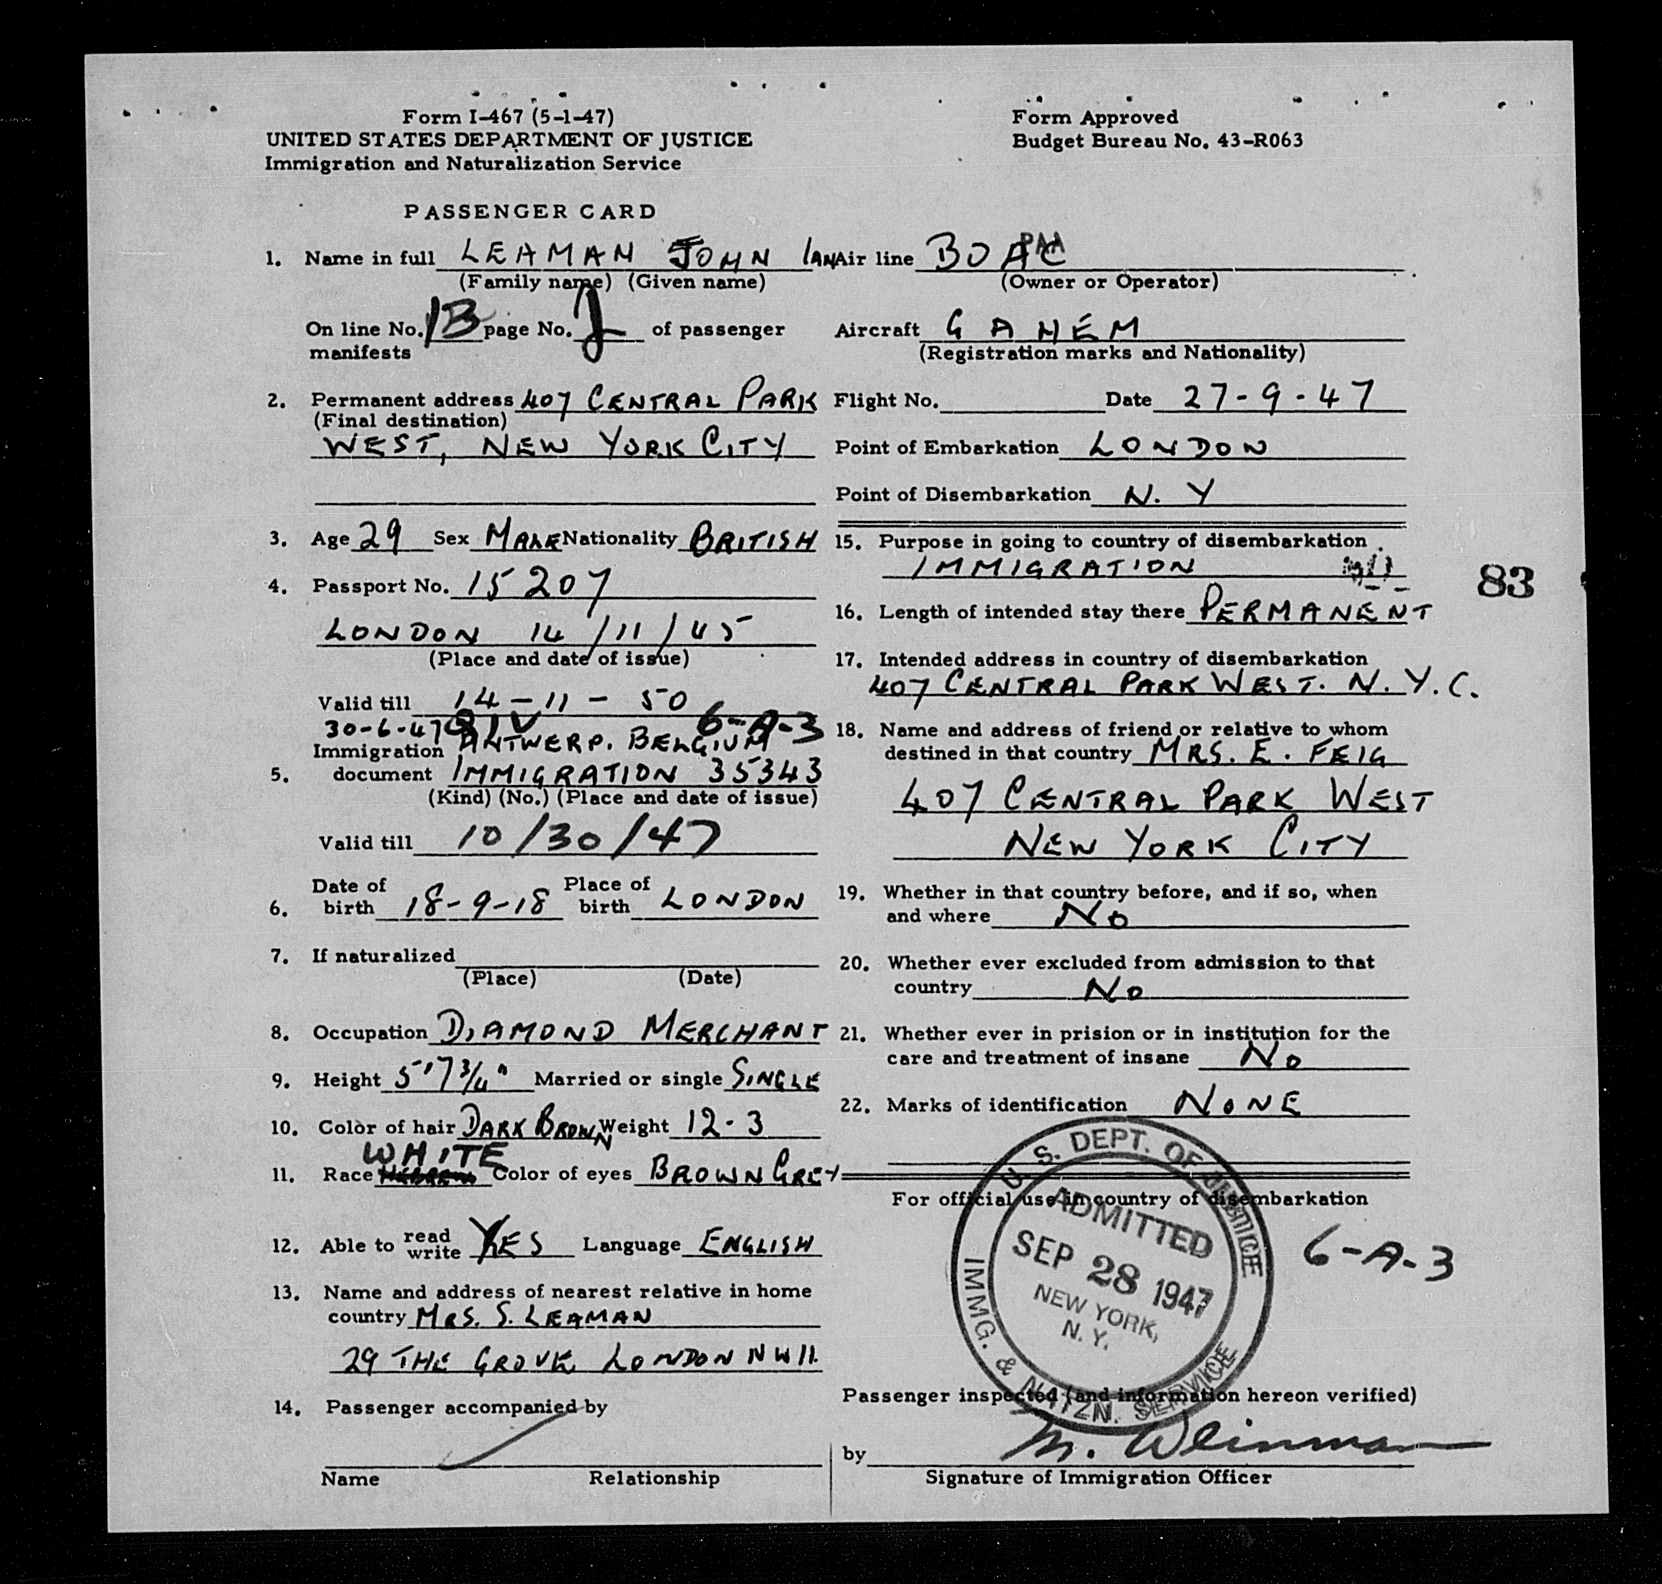 Form I-467 (5-1-47)
UNITED STATES DEPARTMENT OF JUSTICE
Immigration and Naturalization Service
Form Approved
Budget Bureau No. 43-R063
PASSENGER CARD
1. Name in full LEAMAN JOHN IAN
(Family name) (Given name)
On line No. 13 page No. 2 of passenger
manifests
2. Permanent address 407 CENTRAL PARK
(Final destination)
WEST, NEW YORK CITY
3. Age 29 Sex MALE Nationality BRITISH
4. Passport No. 15207
LONDON 14/11/45
(Place and date of issue)
Valid till 14-11-50
30-6-47 QIV 6-A-3
ANTWERP. BELGIUM
5. Immigration document IMMIGRATION 35343
(Kind) (No.) (Place and date of issue)
Valid till 10/30/47
6. Date of birth 18-9-18 Place of birth LONDON
7. If naturalized
(Place) (Date)
8. Occupation DIAMOND MERCHANT
9. Height 5'7 3/4" Married or single SINGLE
10. Color of hair DARK BROWN Weight 12-3
WHITE
11. Race HEBREW Color of eyes BROWN GREY
12. Able to read write YES Language ENGLISH
13. Name and address of nearest relative in home
country MRS. S. LEAMAN
29 THE GROVE, LONDON NW11.
14. Passenger accompanied by
Name Relationship
Air line BOAC PAA
(Owner or Operator)
Aircraft GAHEM
(Registration marks and Nationality)
Flight No. Date 27-9-47
Point of Embarkation LONDON
Point of Disembarkation N.Y
15. Purpose in going to country of disembarkation
IMMIGRATION
83
16. Length of intended stay there PERMANENT
17. Intended address in country of disembarkation
407 CENTRAL PARK WEST. N.Y.C.
18. Name and address of friend or relative to whom
destined in that country MRS. E. FEIG
407 CENTRAL PARK WEST
NEW YORK CITY
19. Whether in that country before, and if so, when
and where NO
20. Whether ever excluded from admission to that
country NO
21. Whether ever in prision or in institution for the
care and treatment of insane NO
22. Marks of identification NONE
For official use in country of disembarkation
U. S. DEPT. OF JUSTICE
ADMITTED
SEP 28 1947
NEW YORK,
N. Y.
IMMG. & NATZN. SERVICE
6-A-3
Passenger inspected (and information hereon verified)
by M. Weinman
Signature of Immigration Officer